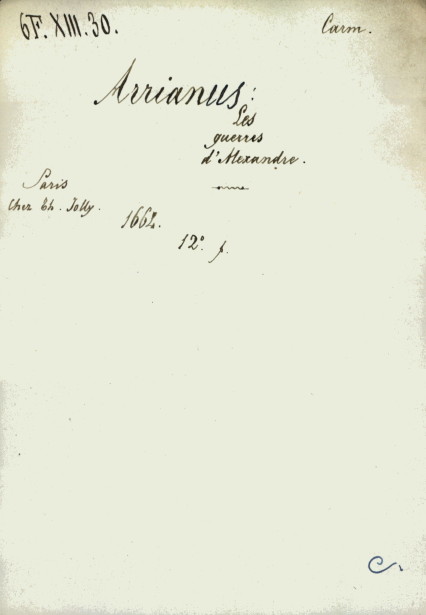 6F. XIII. 30.
Carm.
Arrianus:
Les
guerres
d'Alexandre.
Paris
Chez Th. Jolly.
1664.
12°. f.